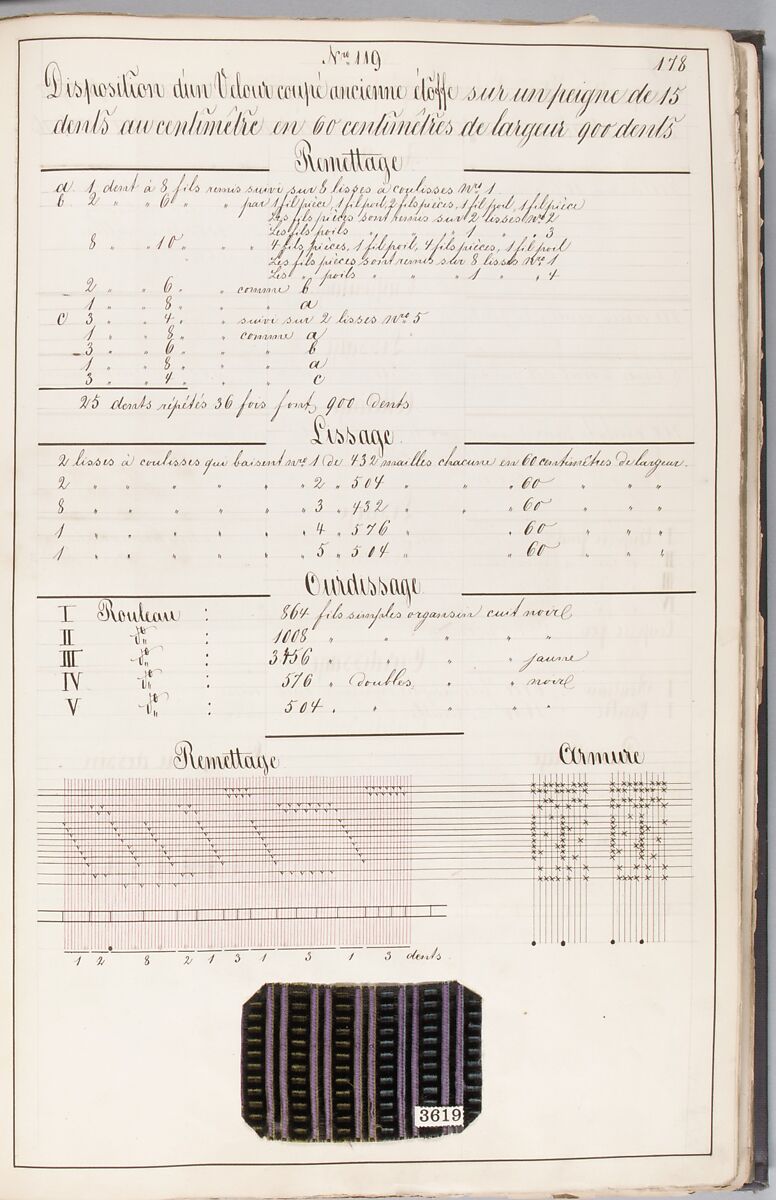 Nro 119
178
Disposition d'un Velour coupé ancienne étoffe sur un peigne de 15
dents au centimêtre en 60 centimêtres de largeur 900 dents
Remettage
a 1 dent à 8 fils remis suivi sur 8 lisses à coulisses Nro 1
b. 2 " " 6 " " par 1 fil pièce, 1 fil poil, 2 fils pièces, 1 fil poil, 1 fil pièce
Les fils pièces sont remis sur 2 lisses Nro 2
Les fils poils " " " 1 " " 3
8 " " 10 " " 4 fils pièces, 1 fil poil, 4 fils pièces, 1 fil poil
Les fils pièces sont remis sur 8 lisses Nro 1
Les " poils " " " 1 " " 4
2 " " 6 " " comme b
1 " " 8 " " " a
c 3 " " 4 " " suivi sur 2 lisses Nro 5
1 " " 8 " " comme a
3 " " 6 " " " b
1 " " 8 " " " a
3 " " 4 " " " c
25 dents répétés 36 fois font 900 dents
Lissage
2 lisses à coulisses qui baisent nro 1 de 432 mailles chacune en 60 centimêtres de largeur.
2 " " " " " 2 " 504 " " " 60 " " "
8 " " " " " 3 " 432 " " " 60 " " "
1 " " " " " 4 " 576 " " " 60 " " "
1 " " " " " 5 " 504 " " " 60 " " "
Ourdissage
I Rouleau : 864 fils simples organsin cuit noire
II do : 1008 " " " " "
III do : 3456 " " " " jaune
IV do : 576 " doubles " " noire
V do : 504 " " " " "
Remettage
Armure
1 2 8 2 1 3 1 3 1 3 dents.
3619